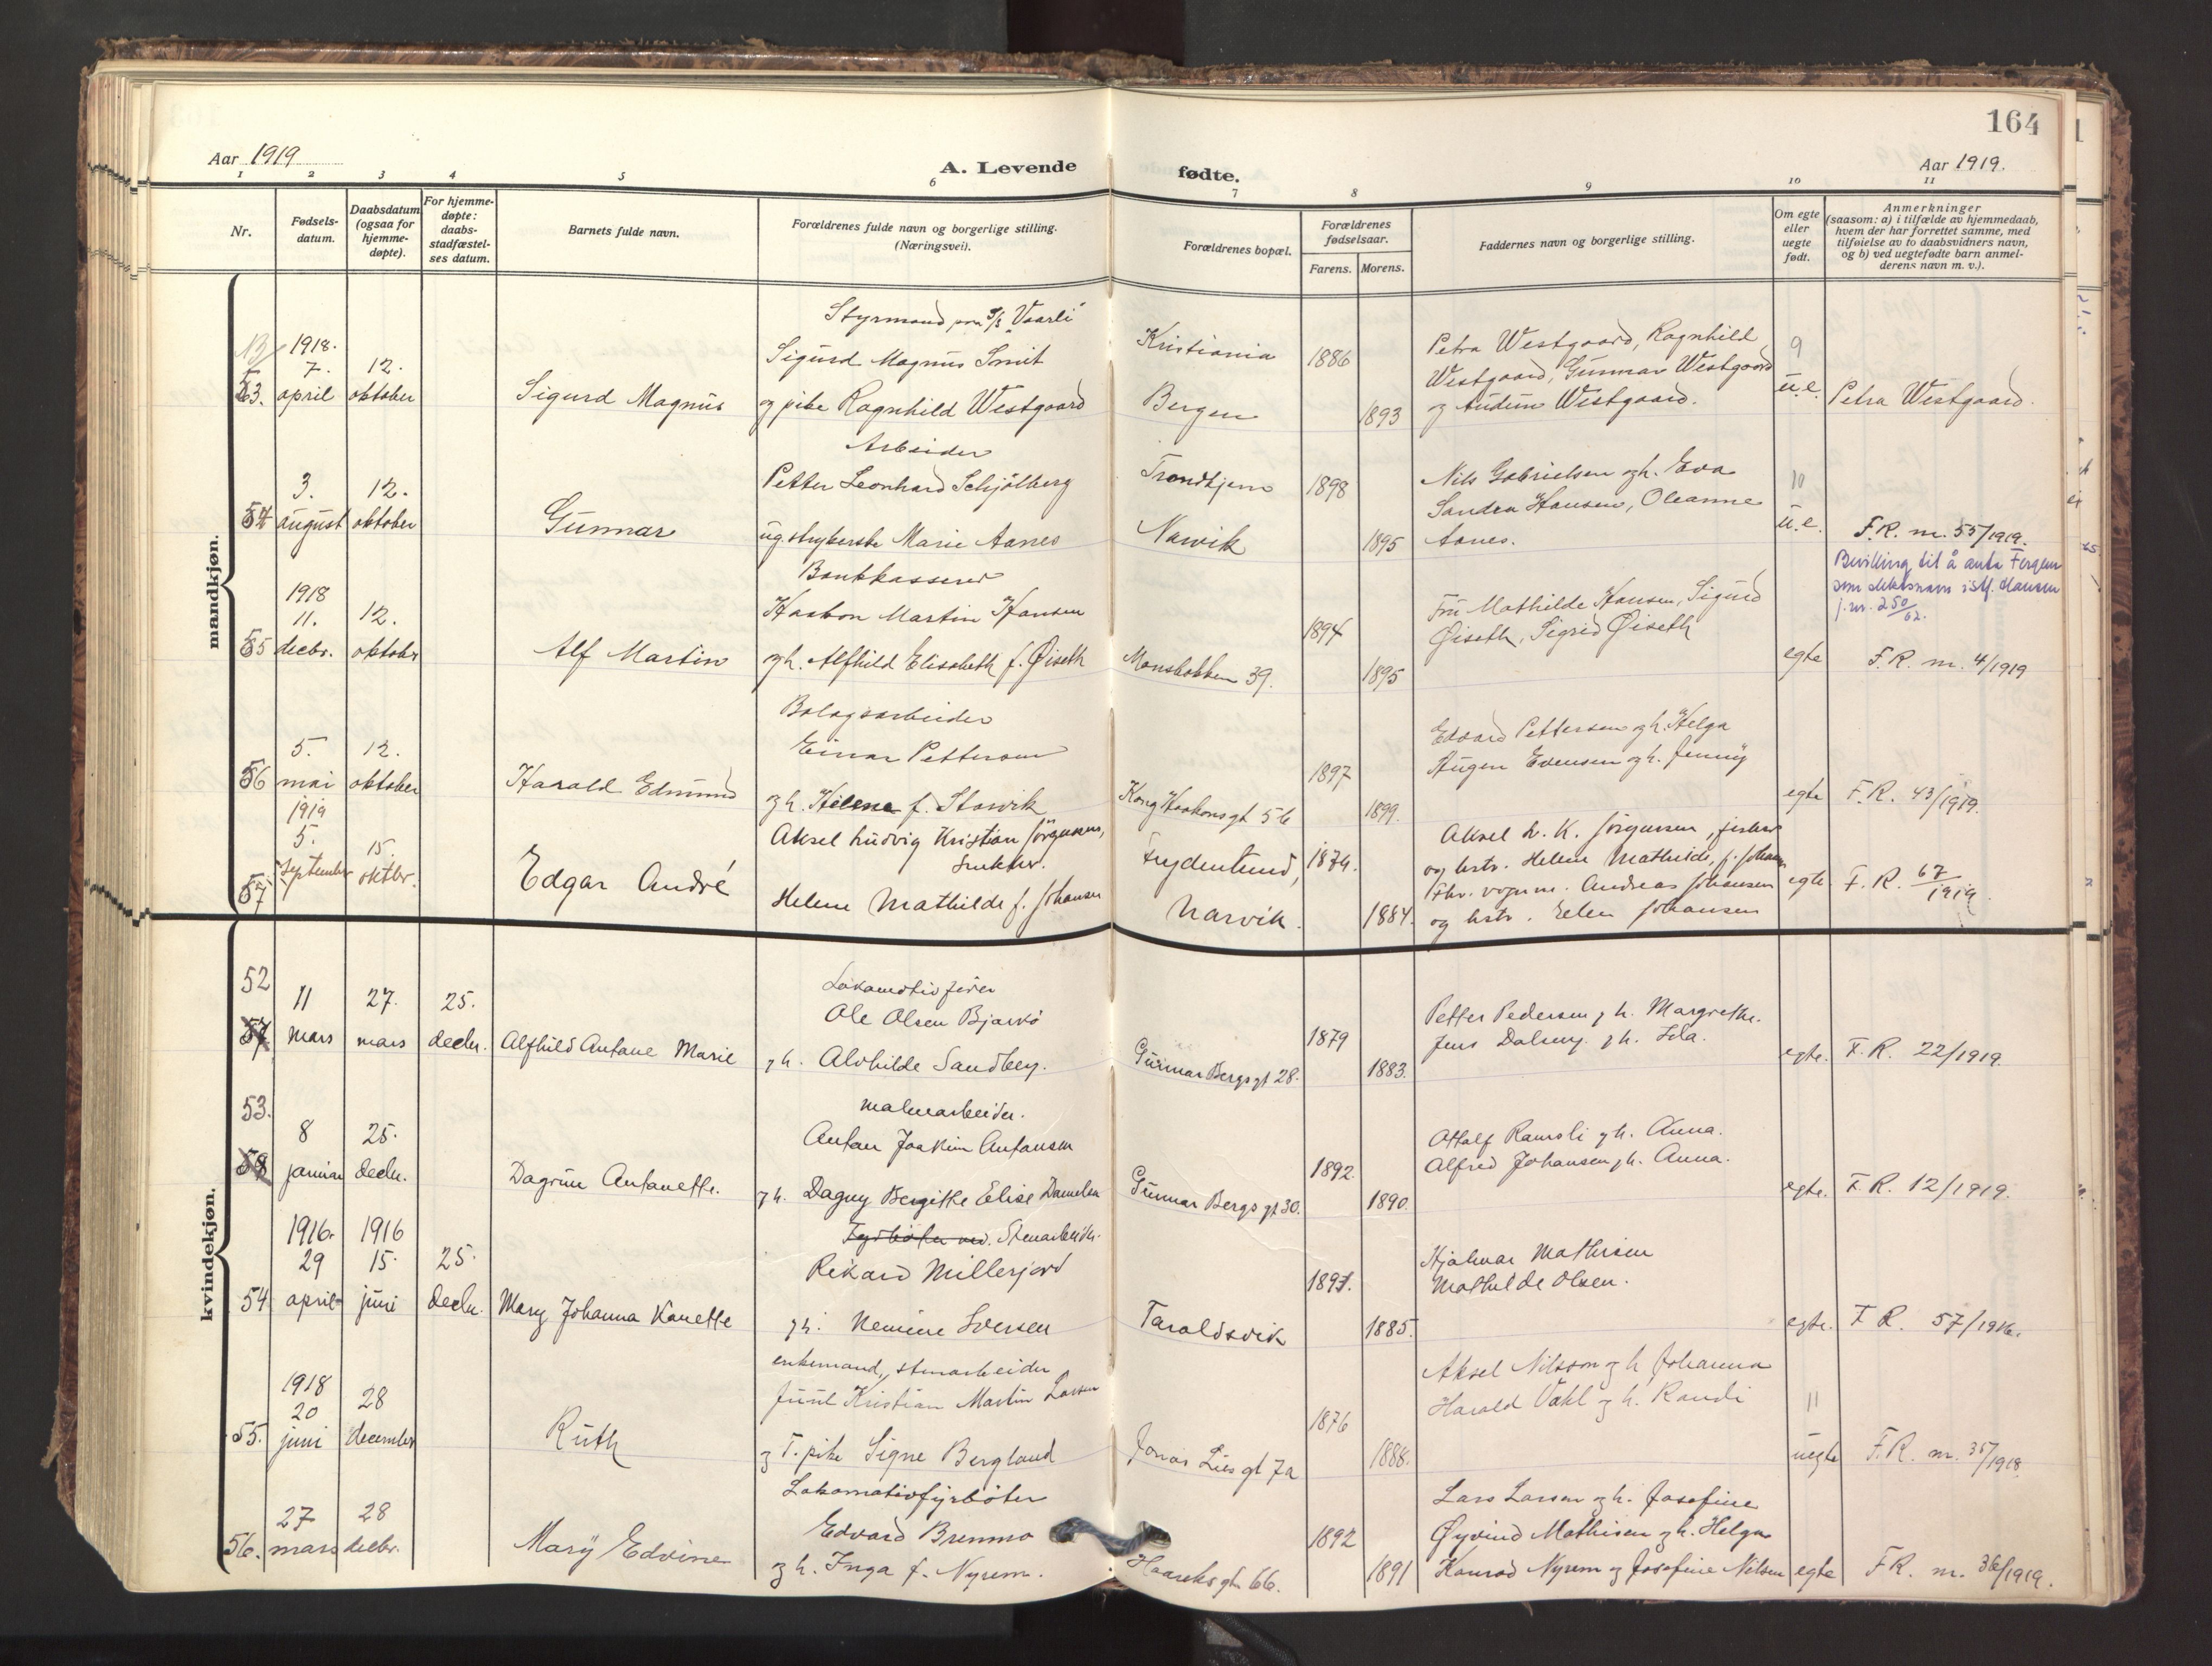 164
Aar 1919
A. Levende
fødte.
Aar 1919.
1 2 3 4 5 6 7 8 9 10 11
Nr.
Fødsels-
datum.
Daabsdatum
(ogsaa for
hjemme-
døpte).
For hjemme-
døpte:
daabs-
stadfæstel-
ses datum.
Barnets fulde navn.
Forældrenes fulde navn og borgerlige stilling.
(Næringsvei).
Forældrenes bopæl.
Forældrenes
fødselsaar.
Farens. Morens.
Faddernes navn og borgerlige stilling.
Om egte
eller
uegte
født.
Anmerkninger
(saasom: a) i tilfælde av hjemmedaab,
hvem der har forrettet samme, med
tilføielse av to daabsvidners navn,
og b) ved uegtefødte barn anmel-
derens navn m. v.).
mandkjøn.
53.
1918.
7.
april
12.
oktober
Sigurd Magnus
Styrmand paa S/S "Vaarli"
Sigurd Magnus Smit
og pike Ragnhild Westgaard
Kristiania
Bergen
1886
1893
Petra Westgaard, Ragnhild
Westgaard, Gunnar Westgaard
og Audun Westgaard.
9
u.e.
Petra Westgaard.
54
3.
august
12.
oktober
Gunnar
Arbeider
Petter Leonhard Schjølberg
ug. strykerske Marie Aanes
Trondhjem
Narvik
1898
1895
Nils Gabrielsen og h. Eva
Sandra Hansen, Oleanne
Aanes.
10
u.e.
F.R. nr. 55/1919.
55
1918
11.
decbr.
12.
oktobr
Alf Martin
Bankkasserer
Haakon Martin Hansen
og h. Alfhild Elisabeth f. Øiseth
Monsbakken 39.
1894
1895
Fru Mathilde Hansen, Sigurd
Øiseth, Sigrid Øiseth
egte
Bevilling til å anta Fergem
som slektsnavn i st. f. Hansen
j.nr. 250/62.
F.R. nr. 4/1919
56
5.
mai
1919
12.
oktober
Harald Edmund
Bolagsarbeider
Einar Pettersen
og h. Helene f. Storvik
Kong Haakonsgt 56
1897
1899.
Edvard Pettersen og h. Helga
Hugen Evensen og h. Jenny
egte
F.R. 43/1919.
57
5.
September
15.
oktbr.
Edgar André
Aksel Ludvig Kristian Jörgensen,
Snekker.
Helene Mathilde f. Johansen
Frydenlund,
Narvik.
1874.
1884.
Aksel L. K. Jörgensen, fisker
og hstr. Helene Mathilde, f. Johans.
Fhv. vognm. Andreas Johansen
og hstr. Elen Johansen
egte
F.R. 67/1919.
kvindekjøn.
52
57
11
mars
27.
mars
25.
decbr.
Alfhild Antane Marie
Lokomotivfører
Ole Olsen Bjarkö
og h. Alvhilde Sandberg.
Gunnar Bergsgt 28.
1879
1883.
Petter Pedersen og h. Margrethe.
Jens Dalseng og h. Ida.
egte.
F.R. 22/1919.
53.
58
8
januar
25.
decbr.
Dagrun Antanette.
malmarbeider.
Antan Joakim Antonsen
og h. Dagny Bergitte Elise Danielsen
Gunnar Bergs gt 30.
1892.
1890.
Attalf Ramsli og h. Anna.
Alfred Johansen og h. Anna.
egte.
F.R. 12/1919.
54
1916.
29
april
1916
15.
juni
25.
decbr.
Mary Johanna Kanette
Fyrbøter ved. Stenarbeider.
Rikard Millerjord
og h. Nemine Iversen
Taraldsvik
1891.
1885.
Hjalmar Mathisen
Mathilde Olsen.
egte.
F R. 57/1916.
55.
1918
20
juni
28
december
Ruth
enkemand, stenarbeider
Juul Kristian Martin Larsen
og T. pike Signe Bergland
Jonas Liesgt 7a
1876
1888.
Aksel Nilsson og h. Johanna
Harald Vahl og h. Randi
11
uegte
F.R. nr. 35/1918.
56.
27
mars
28
decbr.
Mary Edvine
Lokomotivfyrbøter
Edvard Bremmo
og h. Inga f. Nyrem.
Haareks gt 66.
1892
1891
Lars Larsen og h. Josefine
Øyvind Mathisen og h. Helga
Konrad Nyrem og Josefine Nilsen
egte
F.R. nr. 36/1919.